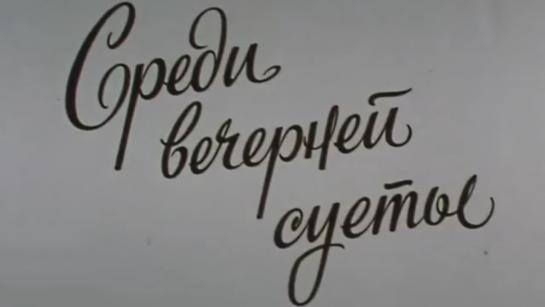 Среди
вечерней
суеты